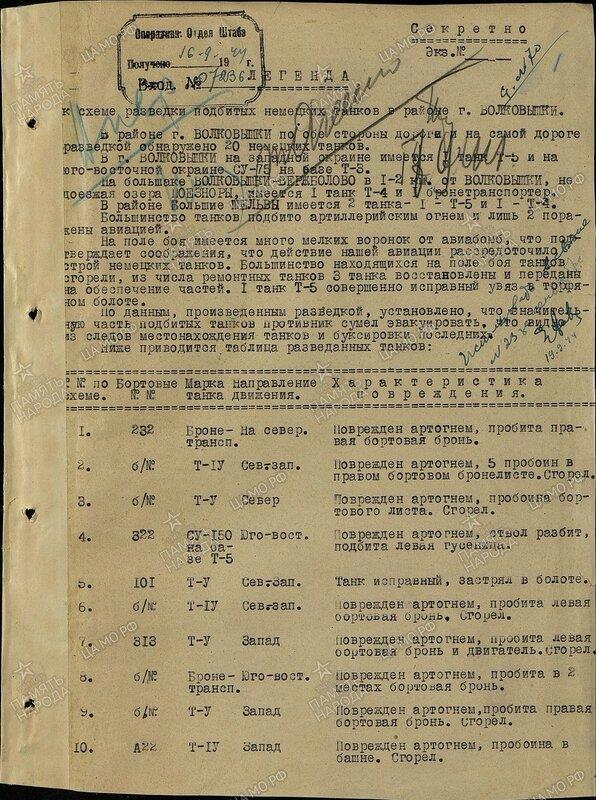 Секретно
Экз.№
Оперативн. Отдел Штаба
Получено 16-9- 1944 г.
Вход. № 07236
ЛЕГЕНДА
к схеме разведки подбитых немецких танков в районе г. ВОЛКОВЫШКИ.
В районе г. ВОЛКОВЫШКИ по обе стороны дороги и на самой дороге
разведкой обнаружено 20 немецких танков.
В г. ВОЛКОВЫШКИ на западной окраине имеется I танк Т-5 и на
юго-восточной окраине СУ-75 на базе Т-3.
На большаке ВОЛКОВЫШКИ-ВЕРЖБОЛОВО в I-2 км. от ВОЛКОВЫШКИ, не
доезжая озера ПОЕЗНОРЫ, имеется I танк Т-4 и бронетранспортер.
В районе Большие ШЕЛЬВЫ имеется 2 танка- I - Т-5 и I - Т-4.
Большинство танков подбито артиллерийским огнем и лишь 2 пора-
жены авиацией.
На поле боя имеется много мелких воронок от авиабомб, что под-
тверждает соображения, что действие нашей авиации рассредоточило
строй немецких танков. Большинство находящихся на поле боя танков
сгорели, из числа ремонтных танков 3 танка восстановлены и переданы
на обеспечение частей. I танк Т-5 совершенно исправный увяз в торфя-
ном болоте.
По данным, произведенным разведкой, установлено, что значитель-
ную часть подбитых танков противник сумел эвакуировать, это видно
из следов местонахождения танков и буксировки последних.
Ниже приводится таблица разведанных танков:
№ № по Бортовые Марка Направление Характеристика
схеме. №№ танка движения. повреждения.
1. 232 Броне- На север. Поврежден артогнем, пробита пра-
трансп. вая бортовая бронь.
2. б/№ Т-IУ Сев-зап. Поврежден артогнем, 5 пробоин в
правом бортовом бронелисте.Сгорел.
3. б/№ Т-У Север Поврежден артогнем, пробоина бор-
тового листа. Сгорел.
4. 322 СУ-I50 Юго-вост. Поврежден артогнем, ствол разбит,
на ба- подбита левая гусеница.
зе Т-5
5. I0I Т-У Сев-зап. Танк исправный, застрял в болоте.
6. б/№ Т-IУ Сев-зап. Поврежден артогнем, пробита левая
бортовая бронь. Сгорел.
7. 313 Т-У Запад Поврежден артогнем, пробита левая
бортовая бронь и двигатель.Сгорел.
8. б/№ Броне- Юго-вост. Поврежден артогнем, пробита в 2
трансп. местах бортовая бронь.
9. б/№ Т-У Запад Поврежден артогнем,пробита правая
бортовая бронь. Сгорел.
10. А22 Т-IУ Запад Поврежден артогнем, пробоина в
башне. Сгорел.
19.9.44
ПАМЯТЬ НАРОДА
ЦАМО.РФ